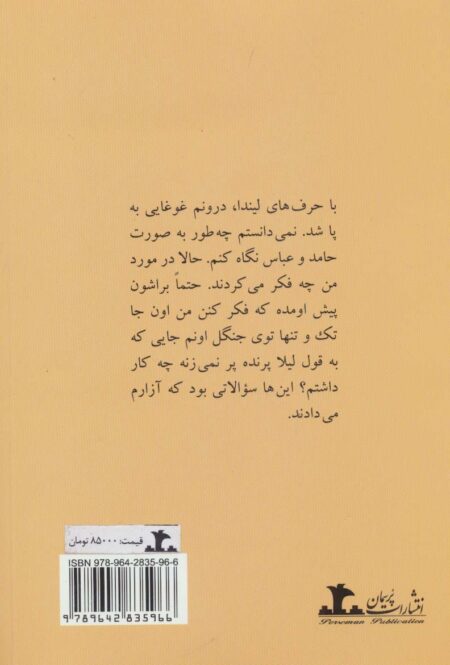 با حرف‌های لیندا، درونم غوغایی به
پا شد. نمی‌دانستم چه‌طور به صورت
حامد و عباس نگاه کنم. حالا در مورد
من چه فکر می‌کردند. حتماً براشون
پیش اومده که فکر کنن من اون جا
تک و تنها توی جنگل اونم جایی که
به قول لیلا پرنده پر نمی‌زنه چه کار
داشتم؟ این‌ها سؤالاتی بود که آزارم
می‌دادند.
قیمت: ۸۵۰۰۰ تومان
ISBN 978-964-2835-96-6
9 789642 835966
انتشارات پُرسِمان
Porseman Publication